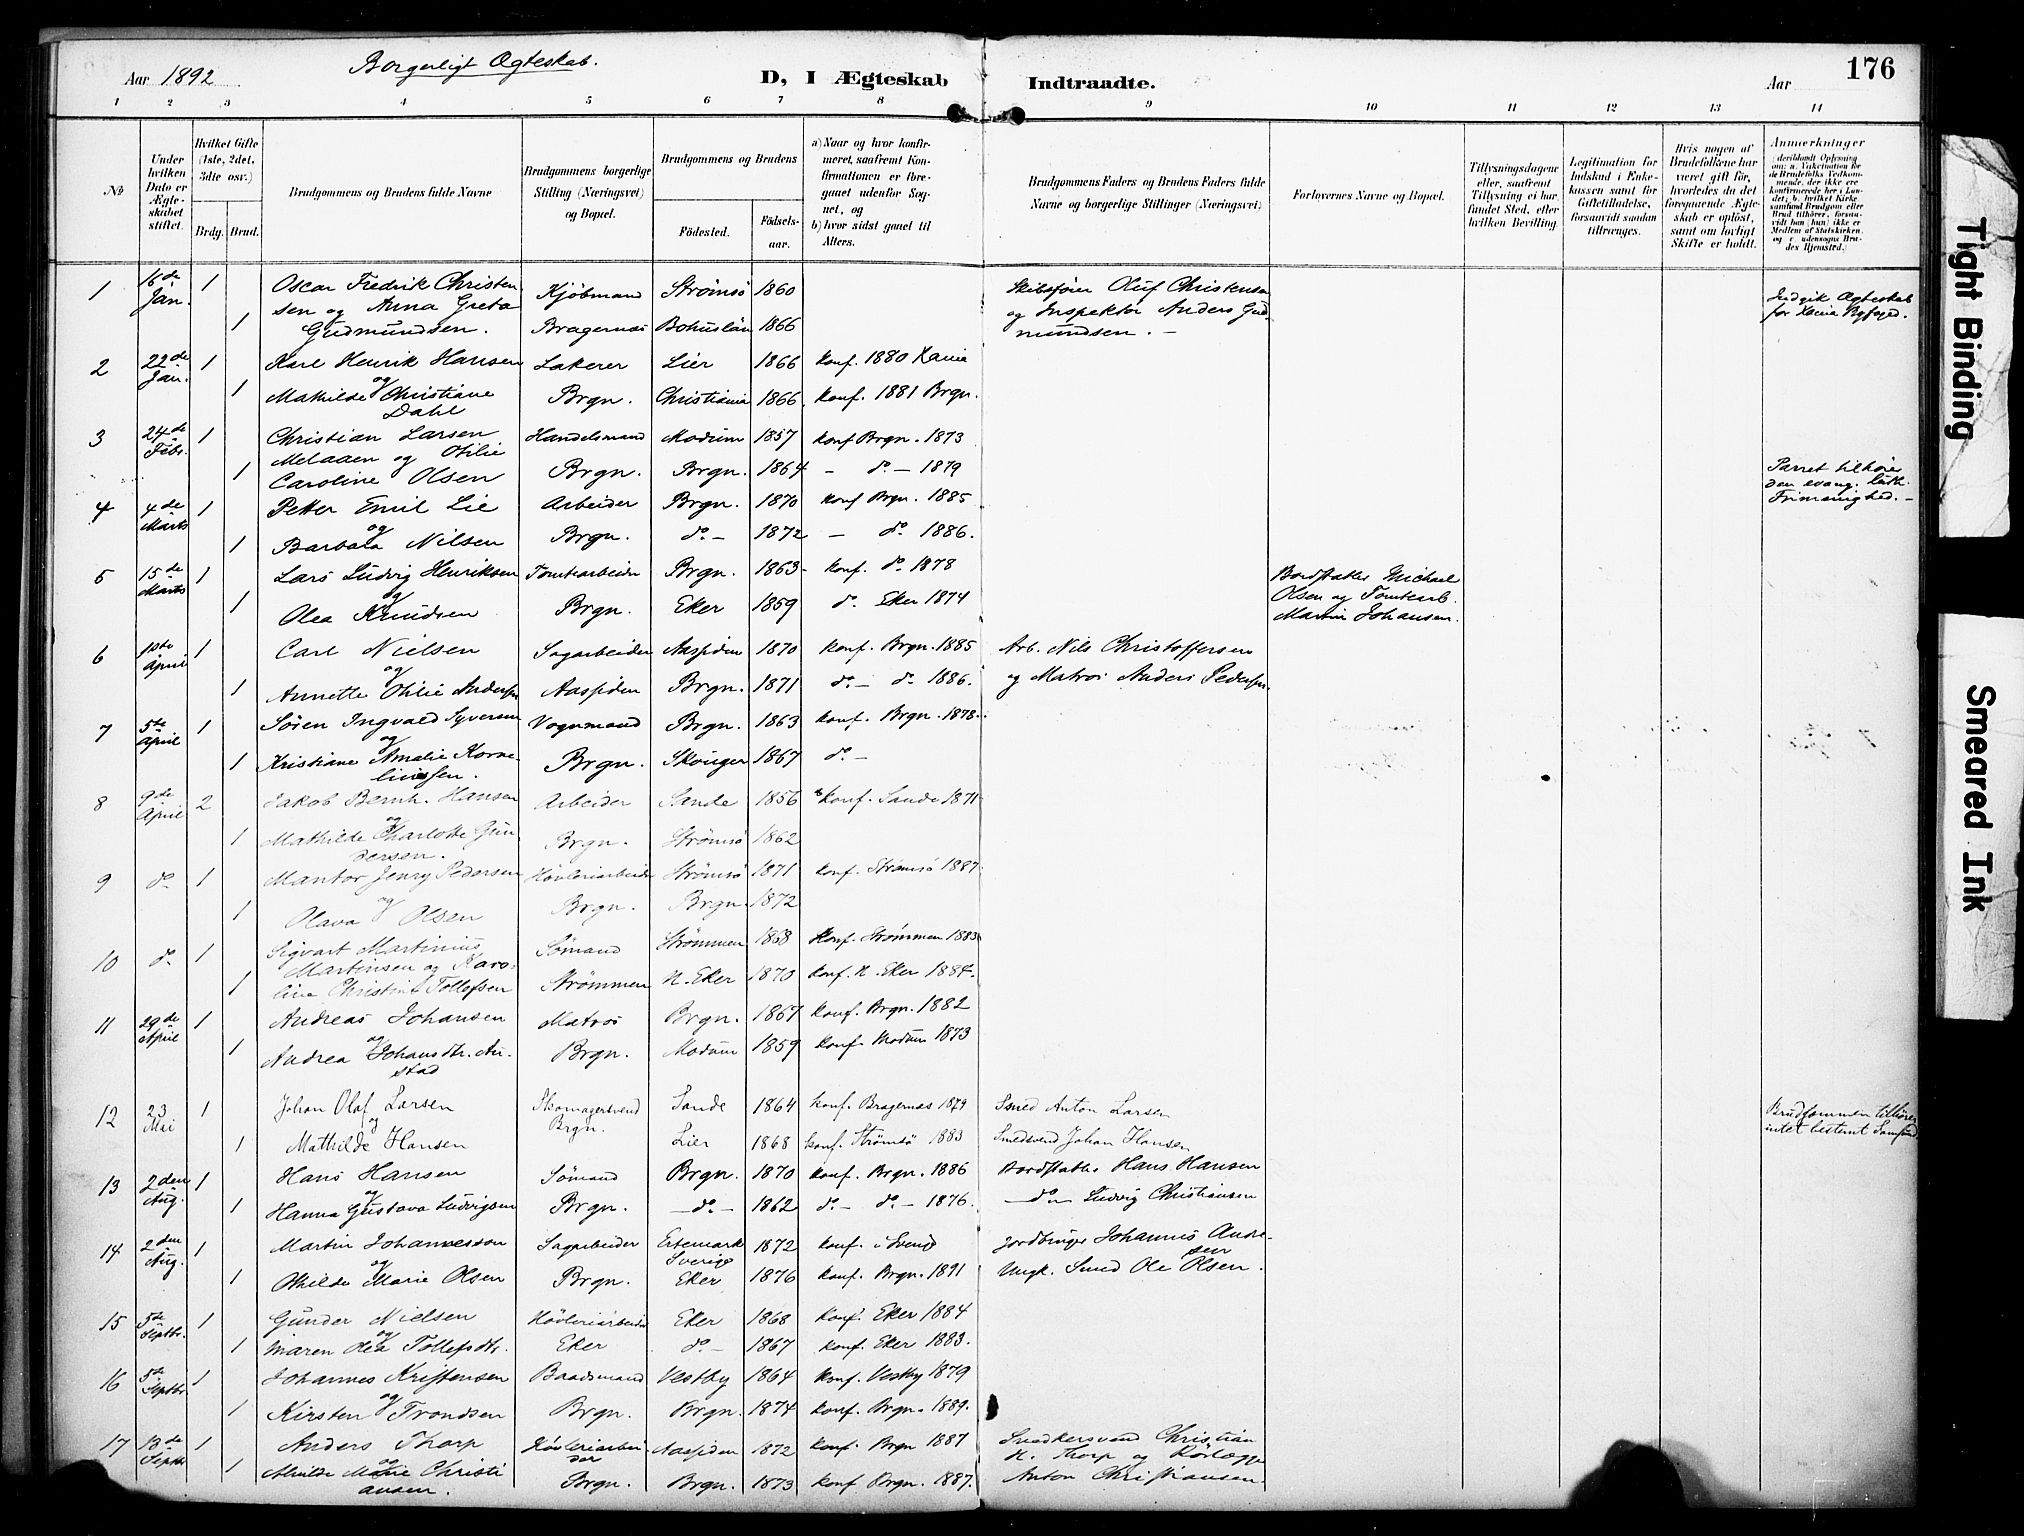 176
Aar 1892
Borgerligt Ægteskab.
D, I Ægteskab
Indtraadte.
Aar
1 2 3 4 5 6 7 8 9 10 11 12 13 14
No
Under hvilken Dato er Ægteskabet stiftet.
Hvilket Gifte (1ste, 2det, 3dte osv.)
Brdg. Brud.
Brudgommens og Brudens fulde Navne
Brudgommens borgerlige Stilling (Næringsvei) og Bopæl.
Brudgommens og Brudens
Fødested.
Fødselsaar.
a) Naar og hvor konfirmeret, saafremt Konfirmationen er foregaaet udenfor Sognet, og
b) hvor sidst gaaet til Alters.
Brudgommens Faders og Brudens Faders fulde Navne og borgerlige Stillinger (Næringsvei)
Forlovernes Navne og Bopæl.
Tillysningsdagene eller, saafremt Tillysning ei har fundet Sted, efter hvilken Bevilling.
Legitimation for Indskud i Enkekassen samt for Giftetilladelse, forsaavidt saadan tiltrænges.
Hvis nogen af Brudefolkene har været gift før, hvorledes da det foregaaende Ægteskab er opløst, samt om lovligt Skifte er holdt.
Anmerkninger
(deriblandt Oplysning om: a. Vakcination for de Brudefolks Vedkommende, der ikke ere konfirmerede her i Landet; b. hvilket Kirkesamfund Brudgom eller Brud tilhører, forsaavidt han (hun) ikke er Medlem af Statskirken, og c. udensogns Brudes Hjemsted.)
1 16de Jan. 1 Oscar Fredrik Christen Kjøbmand Strømsö 1860 Skibsfører Oluf Christensen
sen og Anna Greta og Inspektör Anders Gud-
1 Gudmundsen. Bragernæs Bohuslän 1866 mundsen. Indgik Ægteskab for Xania Byfoged.
2 22de Jan. 1 Karl Henrik Hansen Lakerer Lier 1866 konf. 1880 Xania
og
1 Mathilde Christiane Brgn. Christiania 1866. konf. 1881 Brgn.
Dahl
3 24de Febr. 1 Christian Larsen Handelsmand Modum 1857 konf Brgn. 1873
Melaaen og Otilie
1 Caroline Olsen Brgn. Brgn. 1864 - do - 1879 Parret tilhører den evang. luth. Frimenighed. -
4 4de Marts 1 Petter Emil Lie Arbeider Brgn. 1870 konf Brgn. 1885
og
1 Barbara Nilsen Brgn. do - 1872 - do 1886.
5 15de Marts 1 Lars Ludvig Henriksen Tomtearbeider Brgn. 1863 - konf. do 1878 Bordstabler Michael
og Olsen og Tomtearb.
1 Olea Knudsen Brgn. Eker 1859 do. Eker 1874 Martin Johansen.
6 1ste April 1 Carl Nielsen Sagarbeider Aaspiden 1870 konf. Brgn. 1885 Arb. Nils Christoffersen
og
1 Annette Otilie Andersen Aaspiden Brgn. 1871 do - do 1886. og Matros Anders Pedersen.
7 5te April 1 Søren Ingvald Syversen Vognmand Brgn. 1863 konf. Brgn. 1878.
og
1 Kristiane Amalie Korne- Brgn. Skouger 1867 do -
liussen.
8 9de April 2 Jakob Bernh. Hansen Arbeider Sande 1856 konf. Sande 1871
og
1 Mathilde Charlotte Gun- Brgn. Strømsö 1862
dersen.
9 do 1 Mantor Jenry Pedersen Høvleriarbeider Strømsö 1871 konf. Strømsö 1887.
og
1 Olava Olsen Brgn. Brgn. 1872
10 do 1 Sigvart Martinius Sømand Strømmen 1868 Konf. Strømmen 1883
Martinsen og Karo-
1 line Christine Tollefsen Strømmen N. Eker 1870 konf. N. Eker 1884.
11 29de April 1 Andreas Johansen Matros Brgn. 1867 konf. Brgn. 1882
og
1 Andrea Johansdtr. Au- Brgn. Modum 1859 konf. Modum 1873
stad
12 23 Mai 1 Johan Olaf Larsen Skomagersvend Sande 1864 konf. Bragernæs 1879 Smed Anton Larsen Brudgommen tilhører
og Brgn. intet bestemt Samfund
1 Mathilde Hansen Lier 1868 konf. Strømsö 1883 Smedsvend Johan Hansen
13 2den Aug. 1 Hans Hansen Sømand Brgn. 1870 konf. Brgn. 1886 Bordstabler Hans Hansen
og
1 Hanna Gustava Ludvigsen Brgn. - do - 1862 do - do - 1876. - do - Ludvig Christiansen
14 2den Aug. 1 Martin Johannesson Sagarbeider Ertemark Sverige 1872 konf. i Sverige Jordbruger Johannes Andre-
og sen
1 Othilde Marie Olsen Brgn. Eker 1876 konf. Brgn. 1891 Ungk. Smed Ole Olsen.
15 5te Septbr. 1 Gunder Nielsen Høvleriarbeider Eker 1868 konf. Eker 1884
og
1 Maren Olea Tollefsdtr. Eker do - 1867 konf. Eker 1883.
16 5te Septbr. 1 Johannes Kristensen Baadsmand Vestby 1864 konf. Vestby 1879
og
1 Kirsten Trondsen Brgn. Brgn. 1874 konf. Brgn. 1889.
17 13de Septbr 1 Anders Thorp Høvleriarbei- Aaspiden 1872 konf. Brgn 1887 Snedkersvend Christian
og der H. Thorp og Rørlægger
1 Alvilde Marie Christi Brgn. Brgn. 1873 konf Brgn. 1887. Anton Christiansen.
ansen.
Tight Binding
Smeared Ink